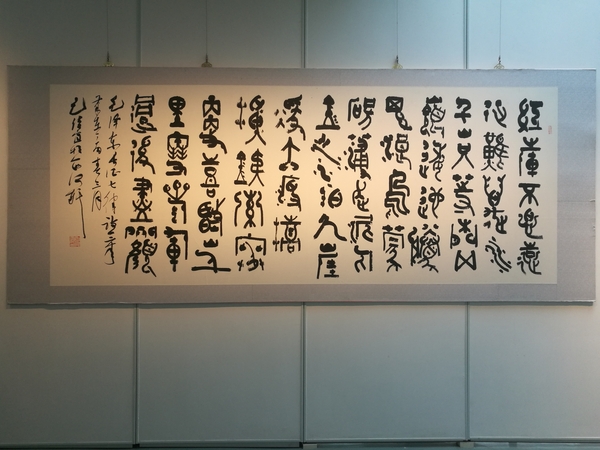 紅軍不怕遠
征難萬水
千山只等閒五
嶺逶迤騰
細浪烏蒙
磅礴走泥丸
金沙水拍云崖
暖大渡橋
橫鐵索寒
更喜岷山千
里雪三軍
過後盡開顏
毛泽东长征七律诗一首
年春三月